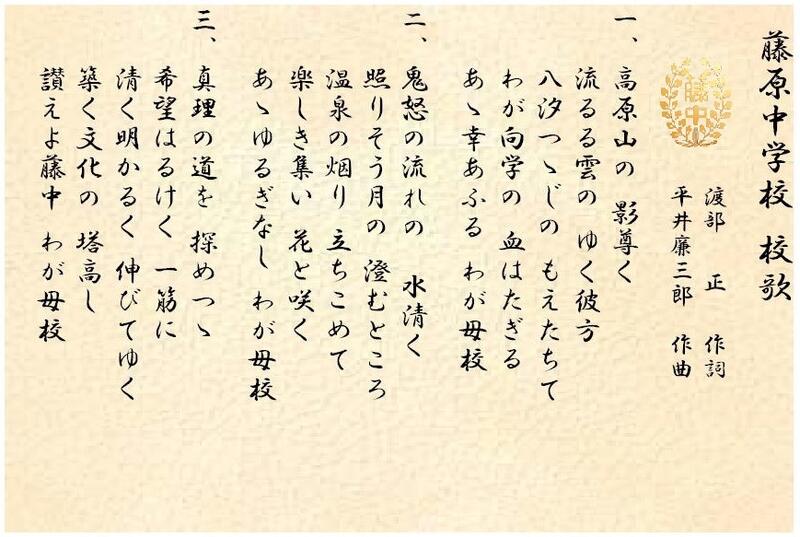 藤原中学校 校歌
藤中
渡部 正 作詞
平井廉三郎 作曲
一、高原山の 影尊く
流るる雲の ゆく彼方
八汐つゝじの もえたちて
わが向学の 血はたぎる
あゝ幸あふる わが母校
二、鬼怒の流れの 水清く
照りそう月の 澄むところ
温泉の烟り 立ちこめて
楽しき集い 花と咲く
あゝゆるぎなし わが母校
三、真理の道を 探めつゝ
希望はるけく 一筋に
清く明かるく 伸びてゆく
築く文化の 塔高し
讃えよ藤中 わが母校